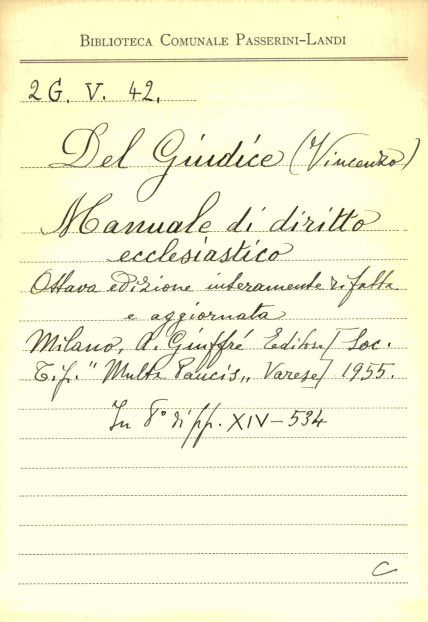 BIBLIOTECA COMUNALE PASSERINI-LANDI
2 G. V. 42.
Del Giudice (Vincenzo)
Manuale di diritto
ecclesiastico
Ottava edizione interamente rifatta
e aggiornata
Milano, A. Giuffré Editore [Soc.
Tip. "Multa Paucis" Varese] 1955.
In 8° di pp. XIV-534
C